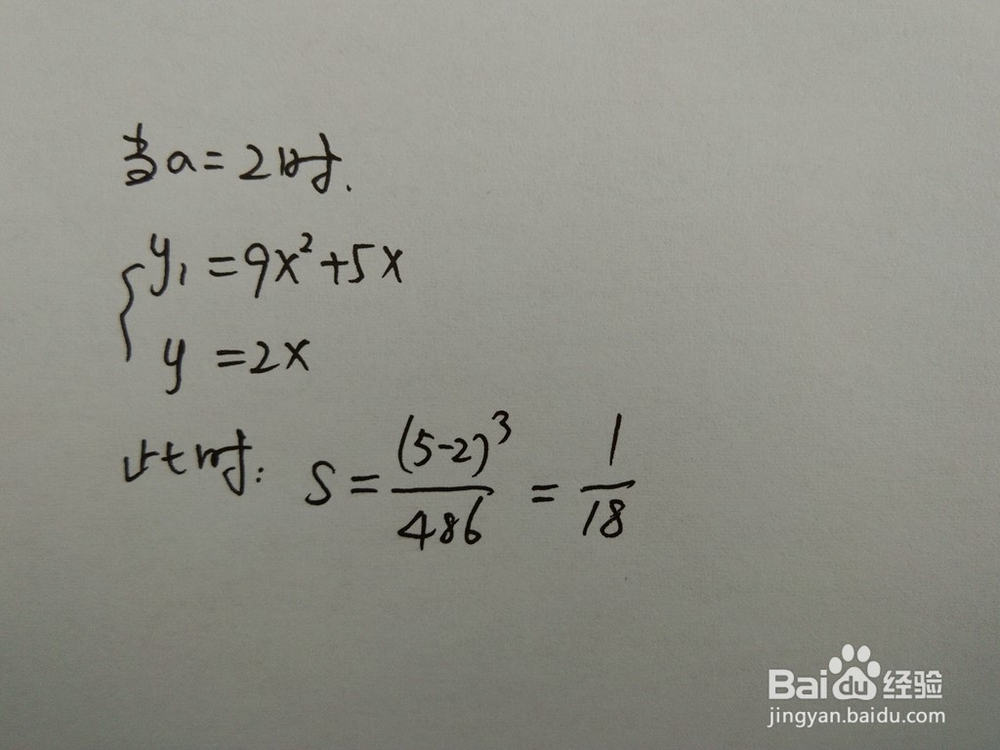 当a=2时.
y₁=9x²+5x
y=2x
此时: S=(5-2)³/486=1/18
Baidu经验
jingyan.baidu.com